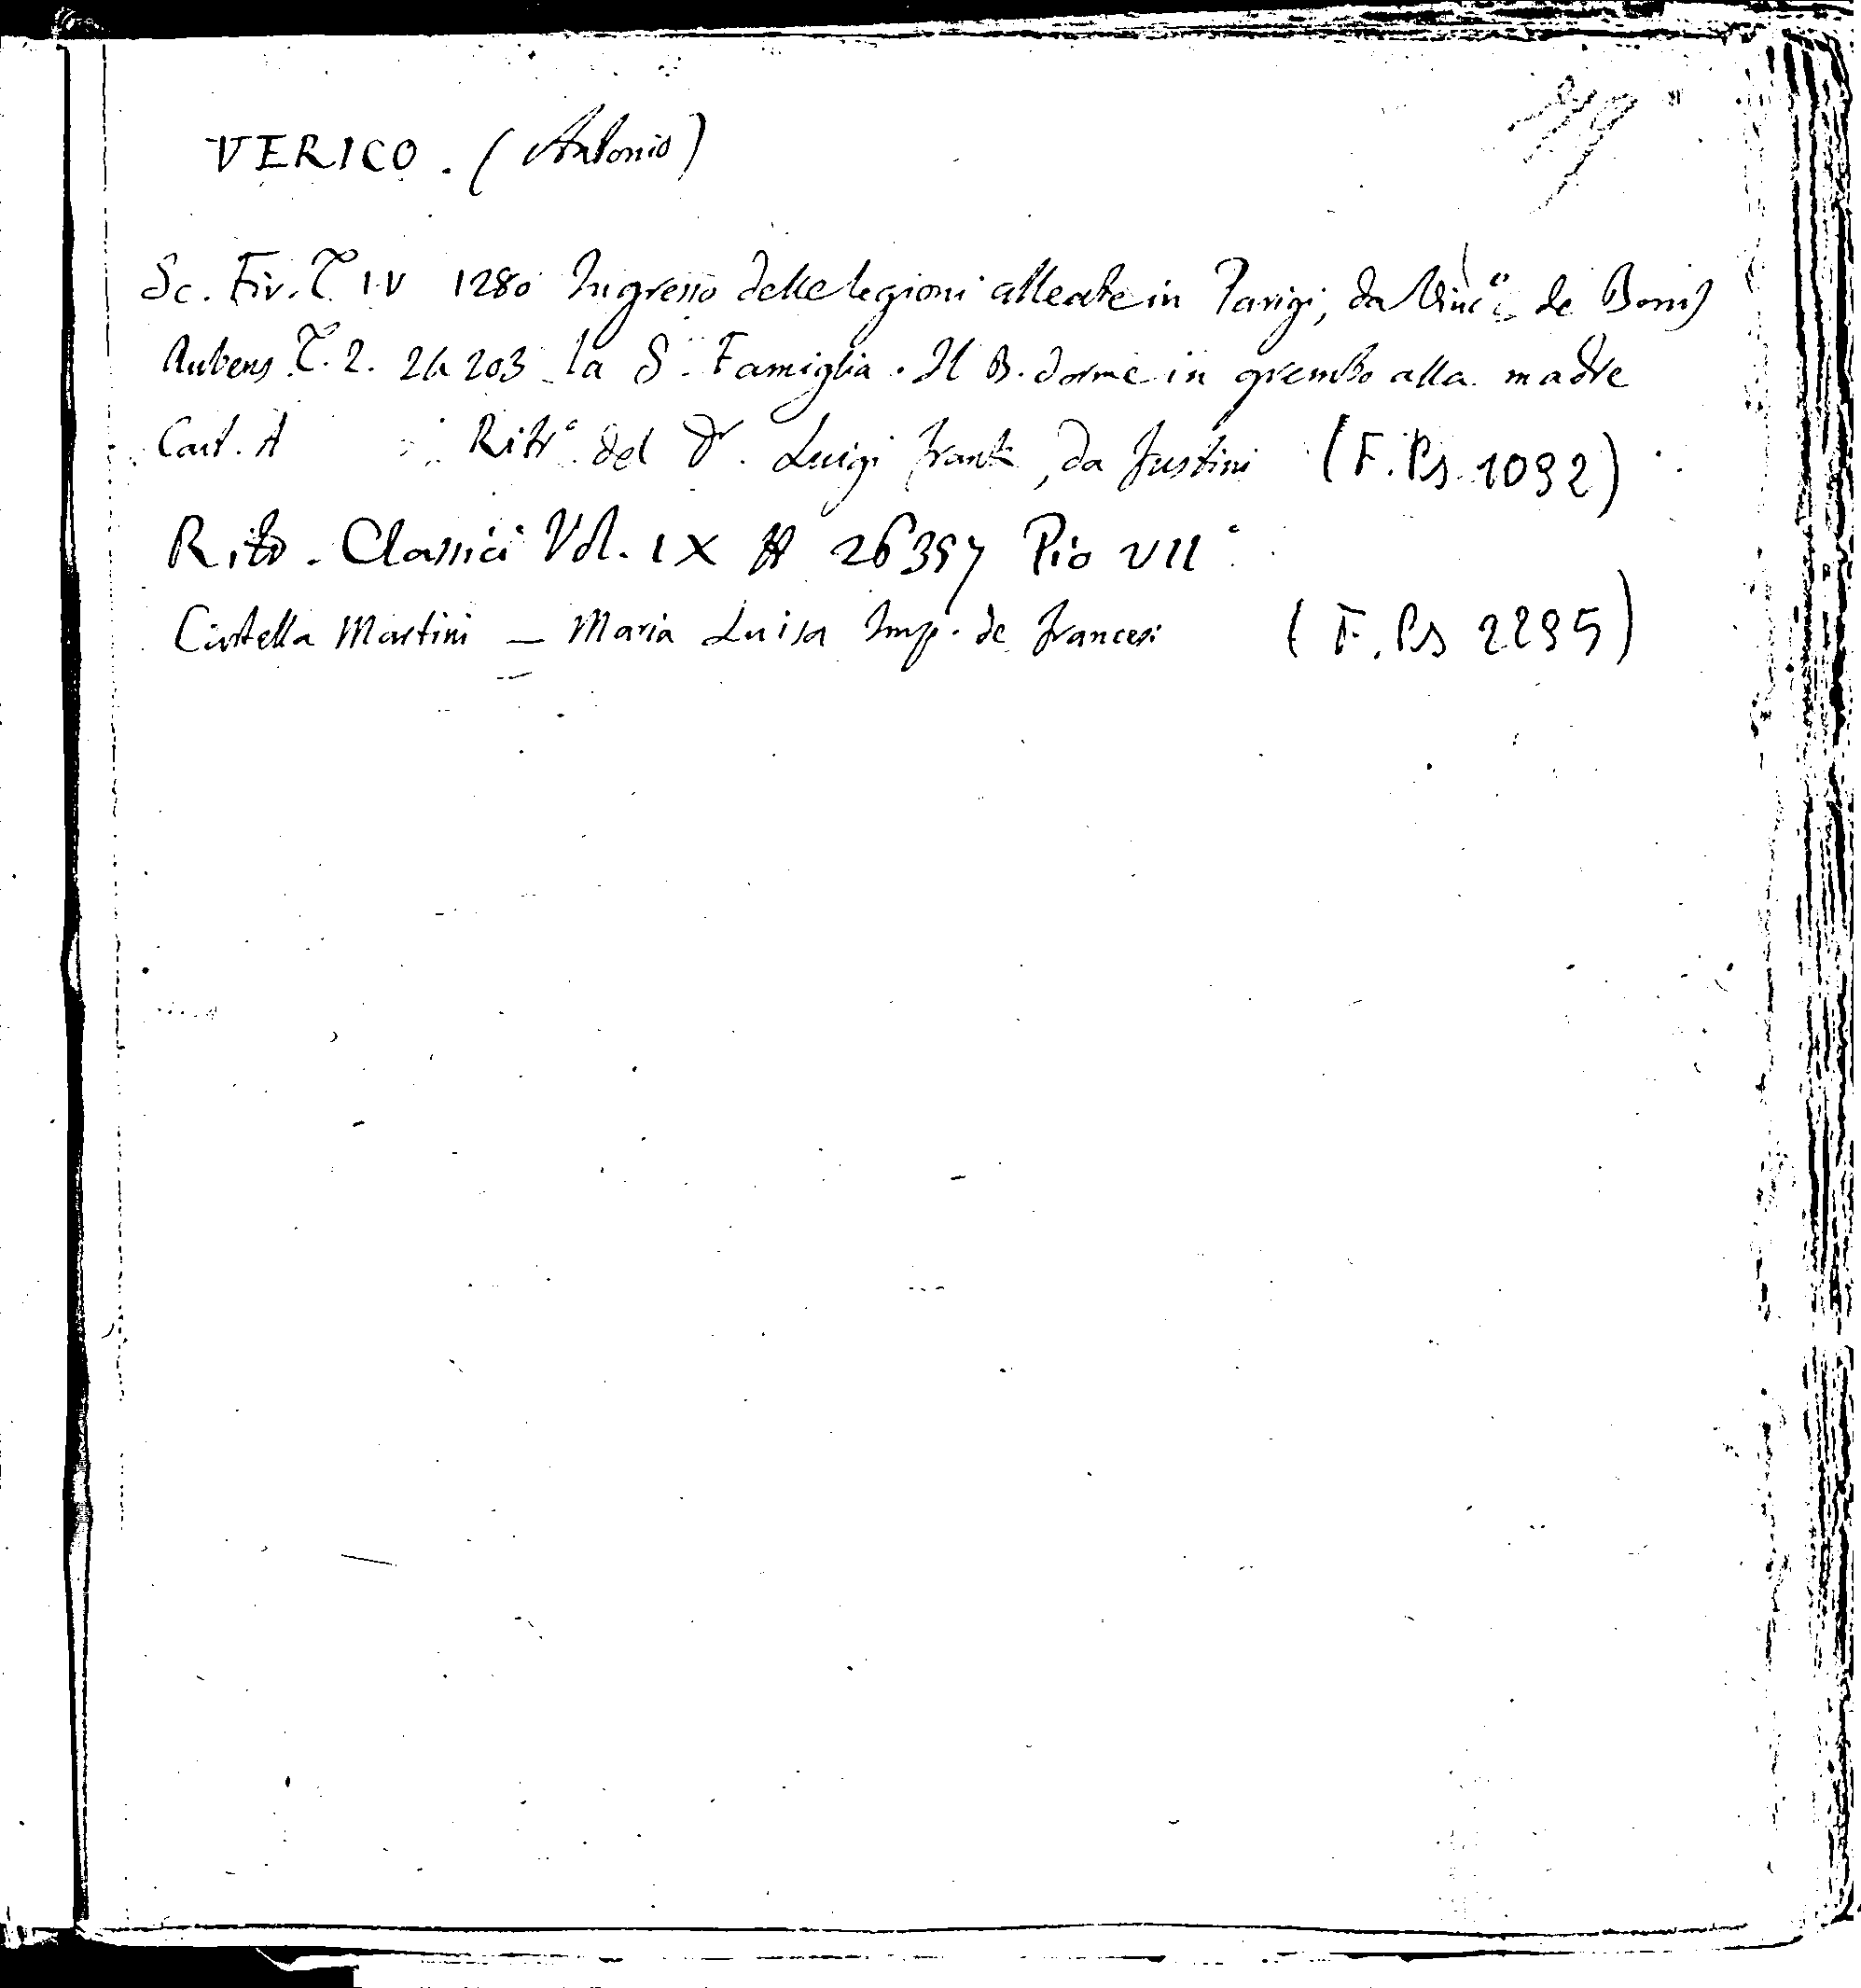 79
VERICO. (Antonio)
Sc. Fir. T. IV 1280 Ingresso delle legioni alleate in Parigi, da Vinc° de Bonis
Rubens T. 2. 24203 la S. Famiglia. Il B. dorme in grembo alla madre
Cart. A Ritr° del Dr. Luigi Frank, da Justini (F. Ps 1092)
Rito. Classici Vol. IX 26397 Pio VII°
Cartella Martini — Maria Luisa Imp. de Francesi (F. Ps 2295)